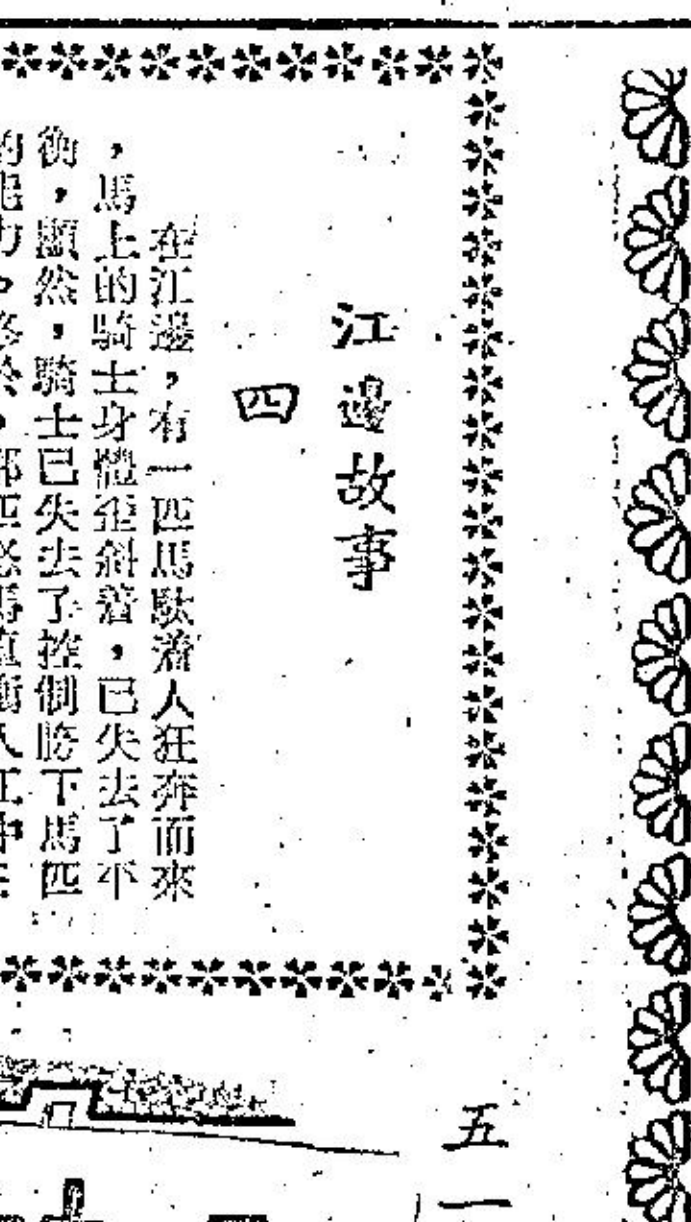 江邊故事
四
在江邊，有一匹馬馱着人狂奔而來
，馬上的騎士身體歪斜着，已失去了平
衡，顯然，騎士已失去了控制胯下馬匹
五一